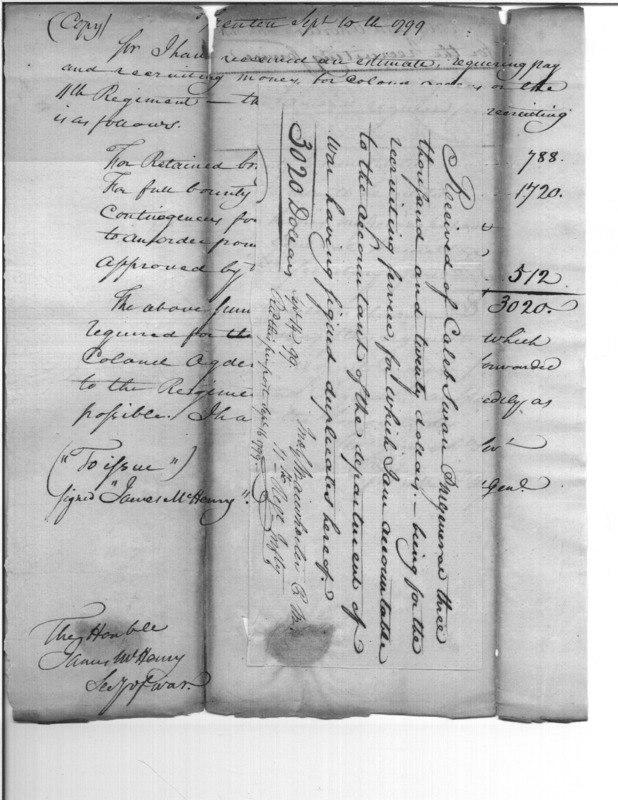 (Copy)
Trenton Sept 10th 1799
Sir I have received an estimate, requiring pay
and recruiting money, for Colonel
11th Regiment — th
recruiting
is as follows.
For Retained bo
788.
For full bounty
1720.
Contingences for
to an order from
approved by
512
3020.
The above sum
which
required for the
forwarded
Colonel Ogde
to the Regime
edily as
possible. I ha
Serv
Genl.
("To issue")
signed "James McHenry".
The Honble
James McHenry
Secy of War.
Received of Caleb Swan P. M. General three
thousand and twenty dollars — being for the
recruiting service, for which I am accountable
to the accountant of the department of
war having signed duplicates hereof.
3020 Dollars
P. M.
11th Regt Infty